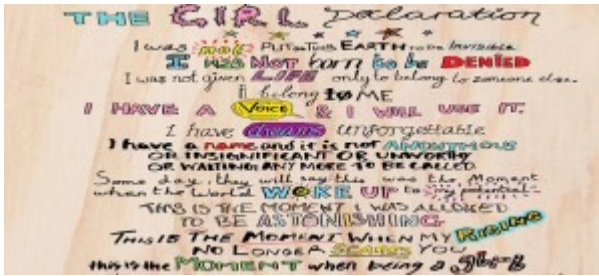 THE GIRL Declaration
I was not PUT on THIS EARTH to be Invisible
I WAS NOT born to be DENIED
I was not given LIFE only to belong to someone else.
I belong to ME
I HAVE A VOICE & I WILL USE IT.
I have dreams unforgettable
I have a name and it is not ANONYMOUS
OR INSIGNIFICANT OR UNWORTHY
OR WAITING ANY MORE TO BE CALLED.
Some day, they will say: this was the Moment
when the world WOKE UP to my potential
THIS IS THE MOMENT I WAS ALLOWED
TO BE ASTONISHING
THIS IS THE MOMENT WHEN MY RISING
NO LONGER SCARES YOU
this is the MOMENT when being a girl